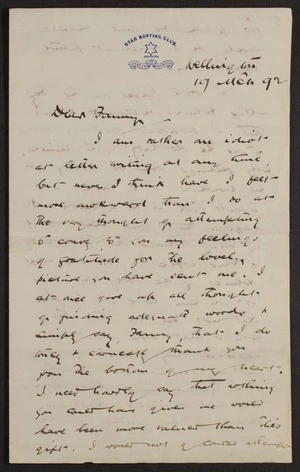 STAR BOATING CLUB.
Wellington
19 Mch 92
Dear Fanny, –
I am rather an idiot
at letter writing at any time,
but never I think have I felt
more awkward than I do at
the very thought of attempting
to convey to you my feelings
of gratitude for the lovely
picture you have sent me. I
at once give up all thought
of finding adequate words, &
simply say, Fanny, that I do
truly & earnestly thank you
from the bottom of my heart.
I need hardly say that nothing
you could have given me would
have been more valued than this
gift. I would not of course attempt